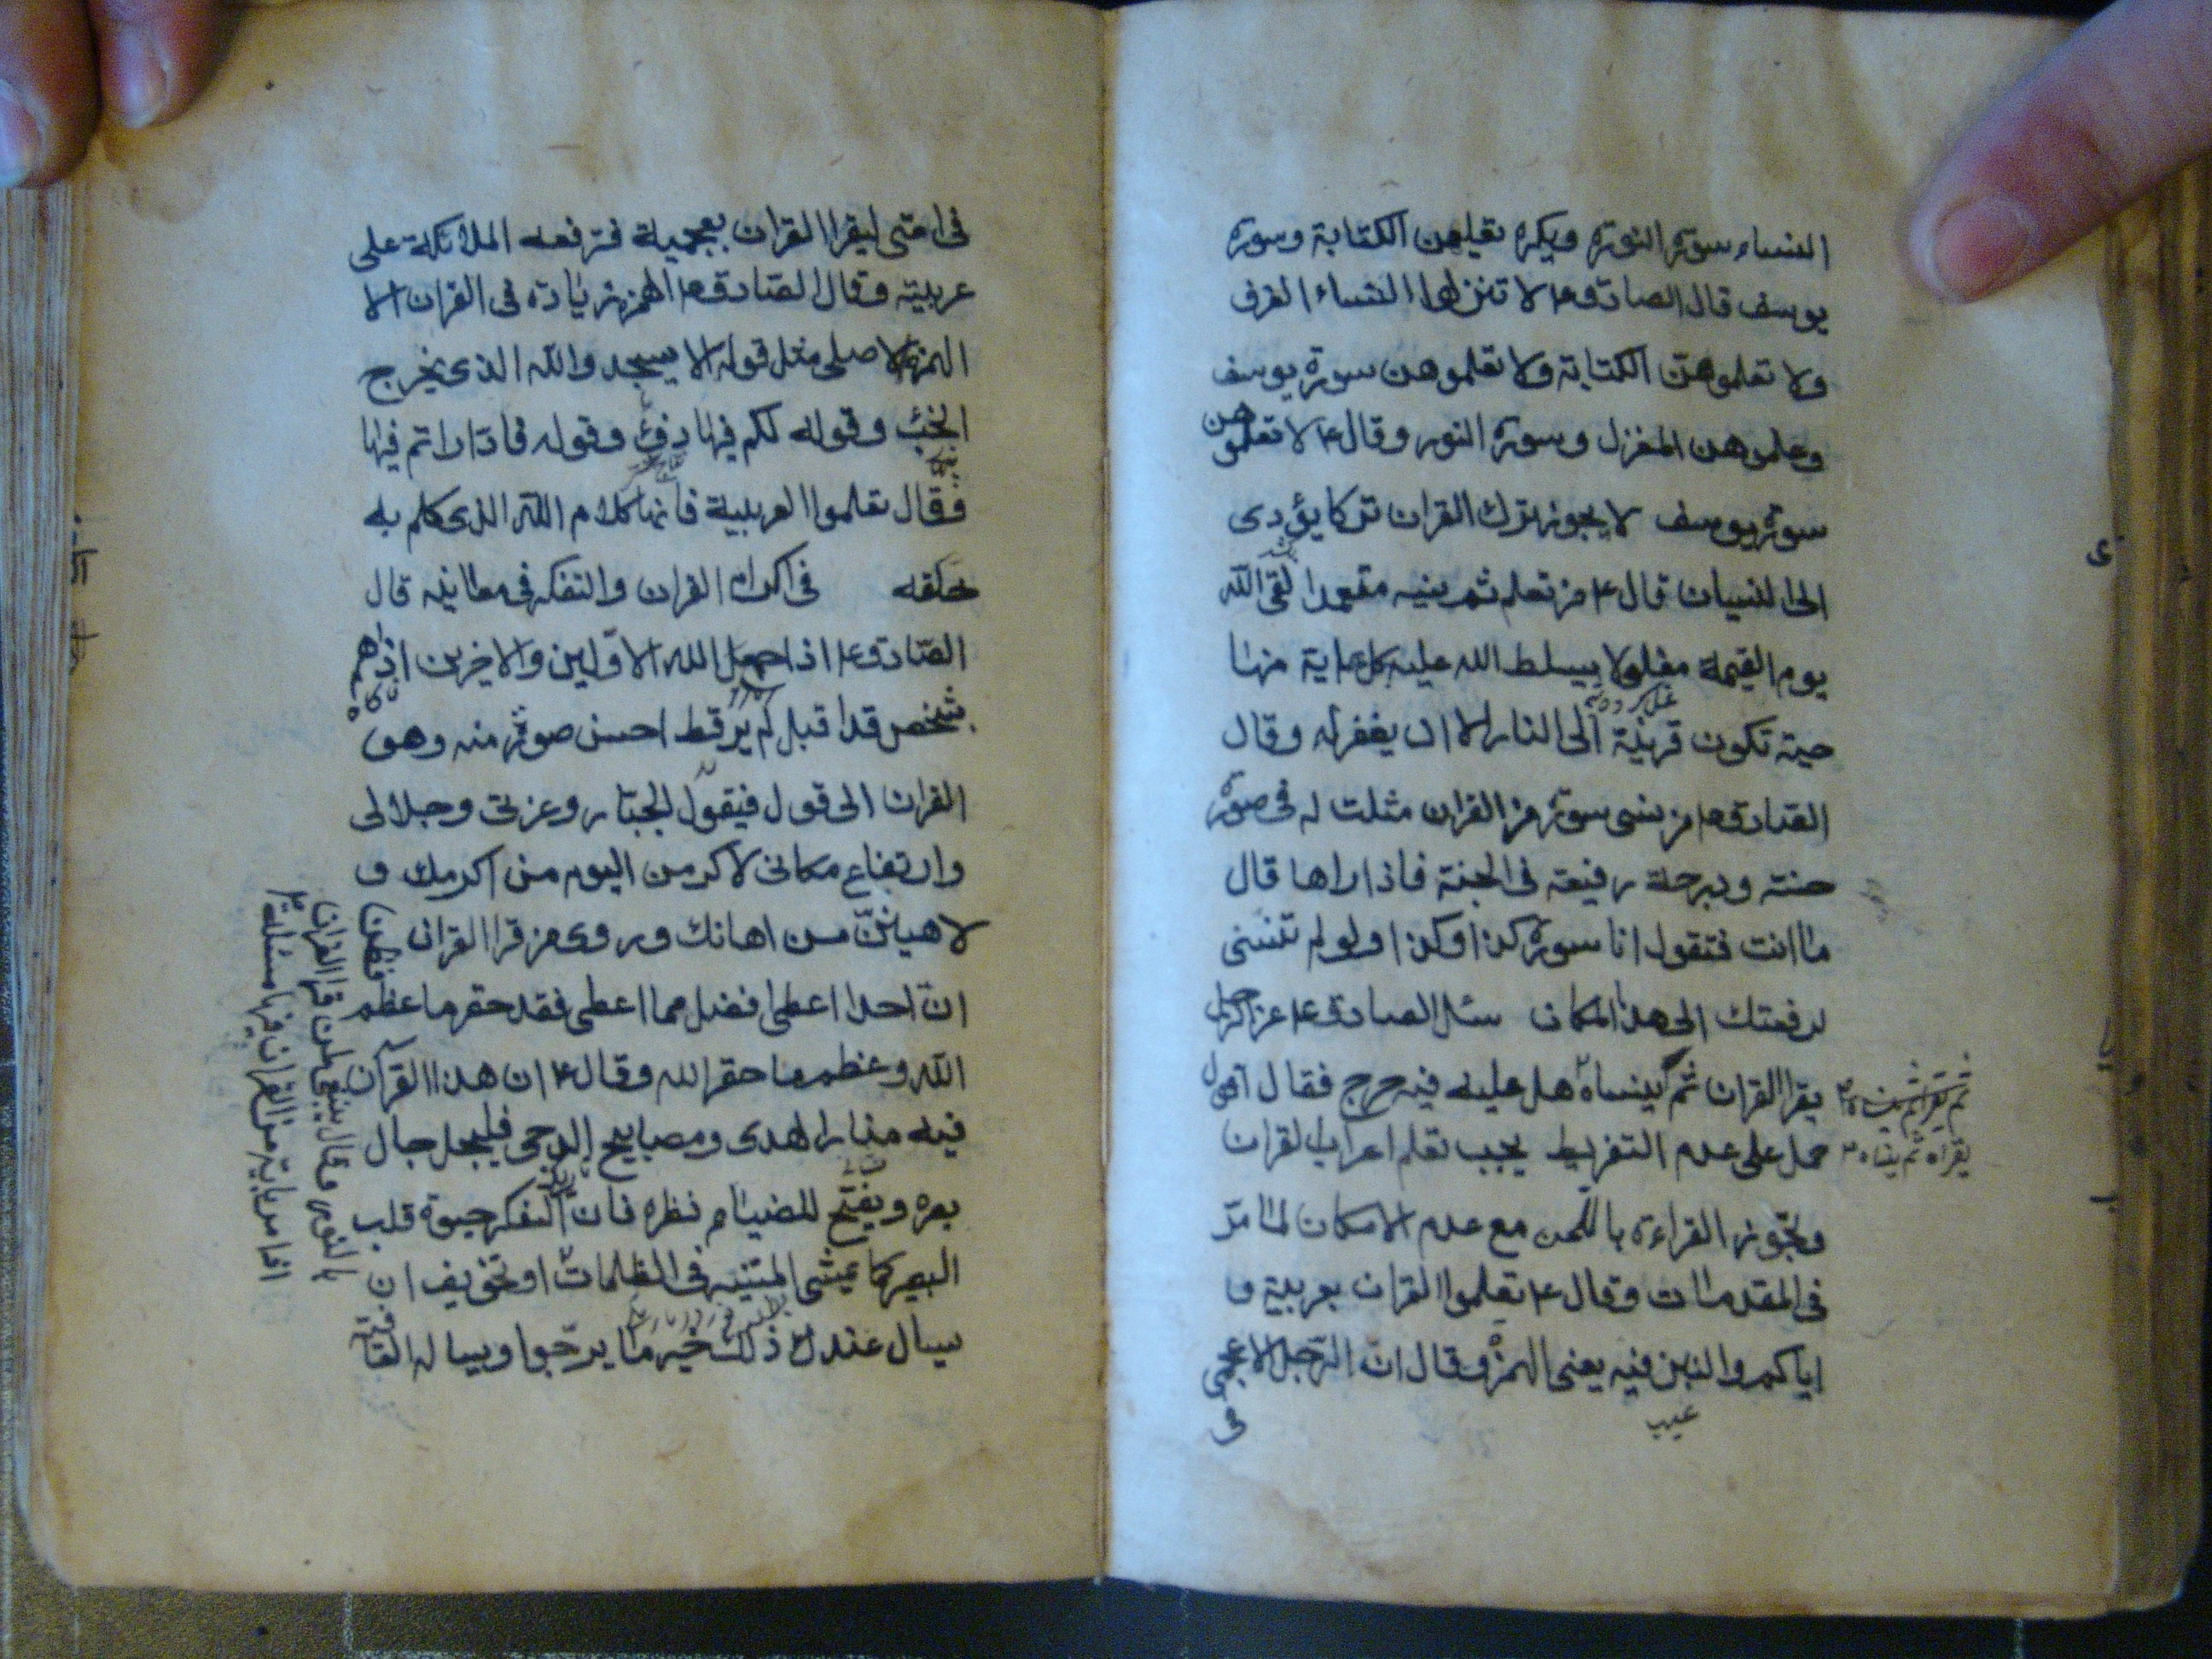 النساء سورة النور ويكره تعليمهن الكتابة وسورة
يوسف قال الصادق ع لا تنزلوا النساء الغرف
ولا تعلموهن الكتابة ولا تعلموهن سورة يوسف
وعلموهن المغزل وسورة النور وقال ع لا تعلموهن
سورة يوسف لا يجوز ترك القران تركا يؤدى
الى النسيان قال ع من تعلم ثم نسيه متعمدا لقى الله
يوم القيمة مغلولا يسلط الله عليه بكل اية منها
حية تكون قرينة الى النار الا ان يغفر له وقال
الصادق ع من نسى سورة من القران مثلت له فى صورة
حسنة ودرجة رفيعة فى الجنة فاذا راها قال
ما انت فتقول انا سورة كذا وكذا ولو لم تنسنى
لرفعتك الى هذا المكان سئل الصادق ع عن الرجل
يقرا القران ثم ينساه هل عليه فيه حرج فقال لا
حمل على عدم التفريط يجب تعلم اعراب القران
وتجوز القراءة باللحن مع عدم الامكان لما مر
فى المقدمات وقال ع تعلموا القران بعربية و
اياكم والنبز فيه يعنى الهمزة وقال ان الرجل الاعجمى
عيب
فى
يقراه ثم ينساه
فى امتى ليقرا القران بعجمية فترفعه الملائكة على
عربية وقال الصادق ع الهمز زيادة فى القران الا
الهمز الاصلى مثل قوله الا يسجدوا لله الذى يخرج
الخبء وقوله لكم فيها دفء وقوله فاداراتم فيها
وقال تعلموا العربية فانها كلام الله الذى كلم به
خلقه فى اكرام القران والتفكر فى معانيه قال
الصادق ع اذا جمع الله الاولين والاخرين اذا هم
بشخص قد اقبل لم ير قط احسن صورة منه وهو
القران الى قوله فيقول الجبار وعزتى وجلالى
وارتفاع مكانى لاكرمن اليوم من اكرمك و
لاهينن من اهانك وروى من قرا القران فظن
ان احدا اعطى افضل مما اعطى فقد حقر ما عظم
الله وعظم ما حقر الله وقال ع ان هذا القرآن
فيه منار الهدى ومصابيح الدجى فليجل جال
بصره ويفتح للضياء نظره فان التفكر حيوة قلب
البصير كما يمشى المستنير فى الظلمات او تخويف ان
يسال عند ذلك خير ما يرجوا ويساله العافية
بالنور وقال ينبغى لمن قرا القران
اذا مر باية من القران فيها مسئلة